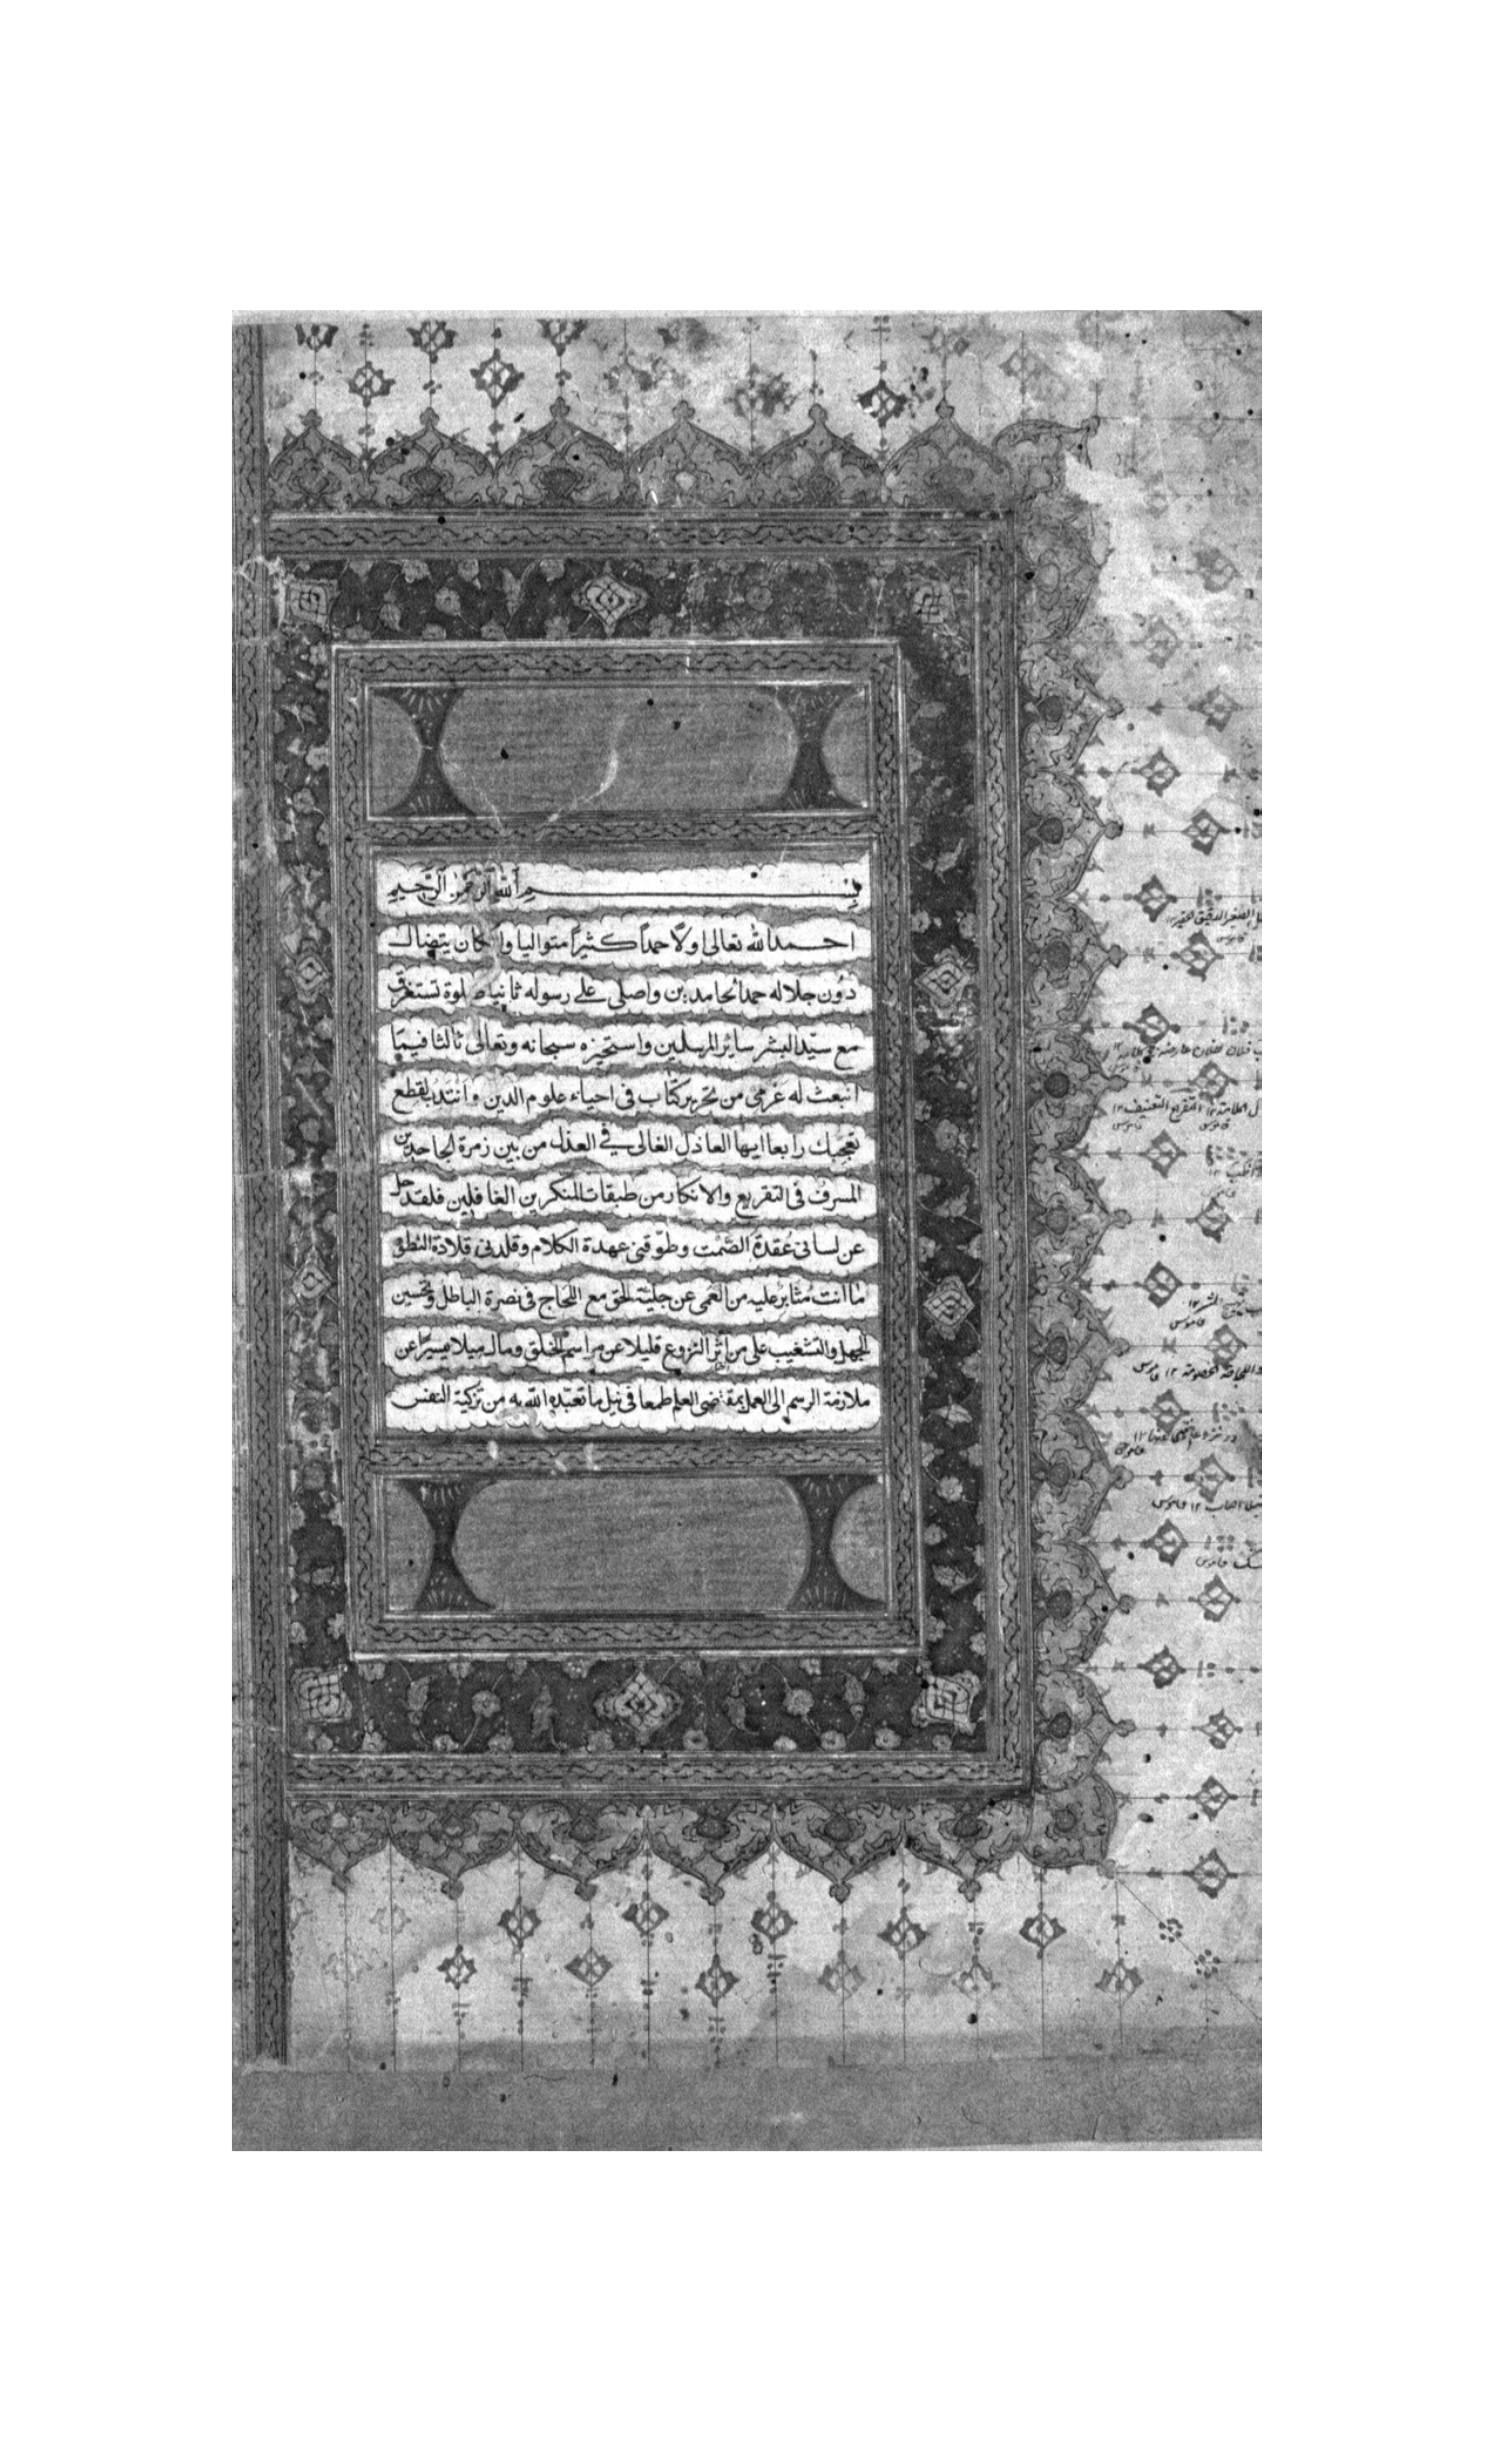 بسم الله الرحمن الرحيم
احمد الله تعالى اولا حمداً كثيراً متواليا وان كان يتضال
دون جلاله حمد الحامدين واصلى على رسوله ثانيا صلوة تستغرق
مع سيّد البشر ساير المرسلين واستخيره سبحانه وتعالى ثالثا فيما
انبعث له عزمي من تحرير كتاب في احياء علوم الدين وانتدب لقطع
تعجبك رابعا ايها العاذل الغالى في العذل من بين زمرة الجاحدين
المسرف في التقريع والانكار من طبقات المنكرين الغافلين فلقد حل
عن لسانى عقدة الصمت وطوّقنى عهدة الكلام وقلدنى قلادة النطق
ما انت مثابر عليه من العمى عن جلية الحق مع اللجاج في نصرة الباطل وتحسين
الجهل والتشغيب على من آثر النزوع قليلا عن مراسم الخلق ومال ميلا يسيرا عن
ملازمة الرسم الى العمل بمقتضى العلم طمعا في نيل ما تعبّده الله به من تزكية النفس
الصغير الدقيق الحقير ١٢
قاموس
التقريع التعنيف ١٢
قاموس
قاموس
الخصومة ١٢
قاموس
اصاب ١٢ قاموس
قاموس